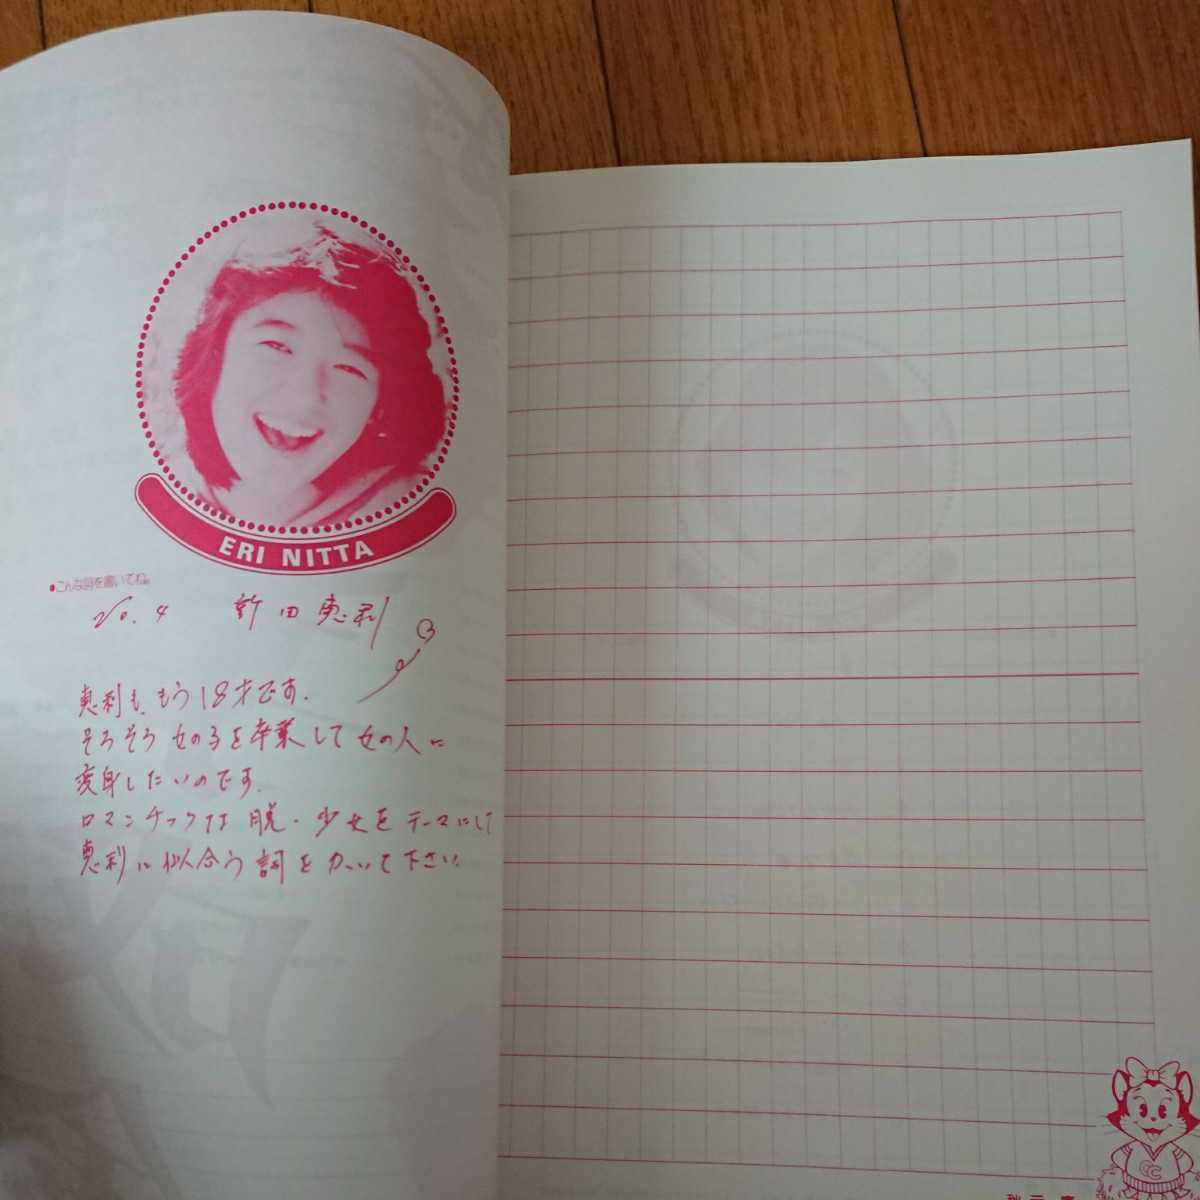 ERI NITTA
●こんな詞を書いてね。
No.4 新田恵利
恵利も、もう18才です。
そろそろ女の子を卒業して女の人に
変身したいのです。
ロマンチックな脱・少女をテーマにして
恵利に似合う詞をかいて下さい。
CC